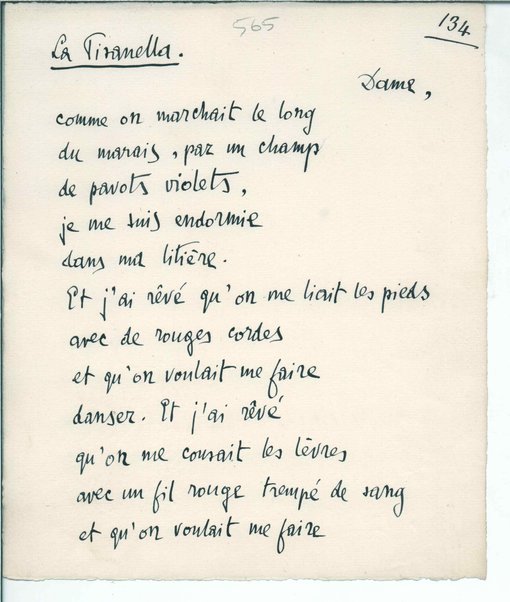 565
134
La Pisanella.
Dame,
comme on marchait le long
du marais, par un champ
de pavots violets,
je me suis endormie
dans ma litière.
Et j'ai rêvé qu'on me liait les pieds
avec de rouges cordes
et qu'on voulait me faire
danser. Et j'ai rêvé
qu'on me cousait les lèvres
avec un fil rouge trempé de sang
et qu'on voulait me faire